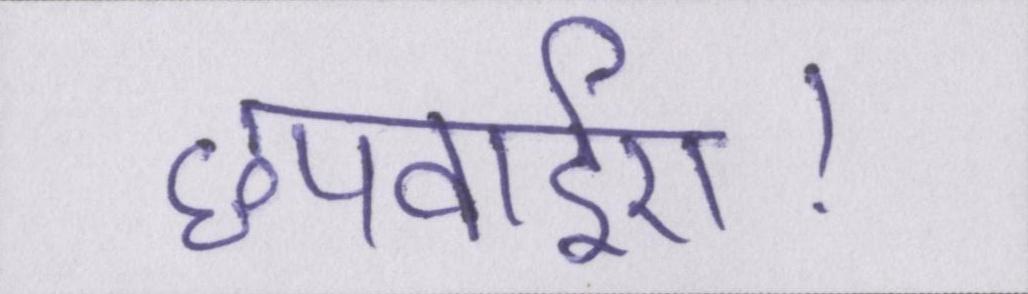 छपवाईए!